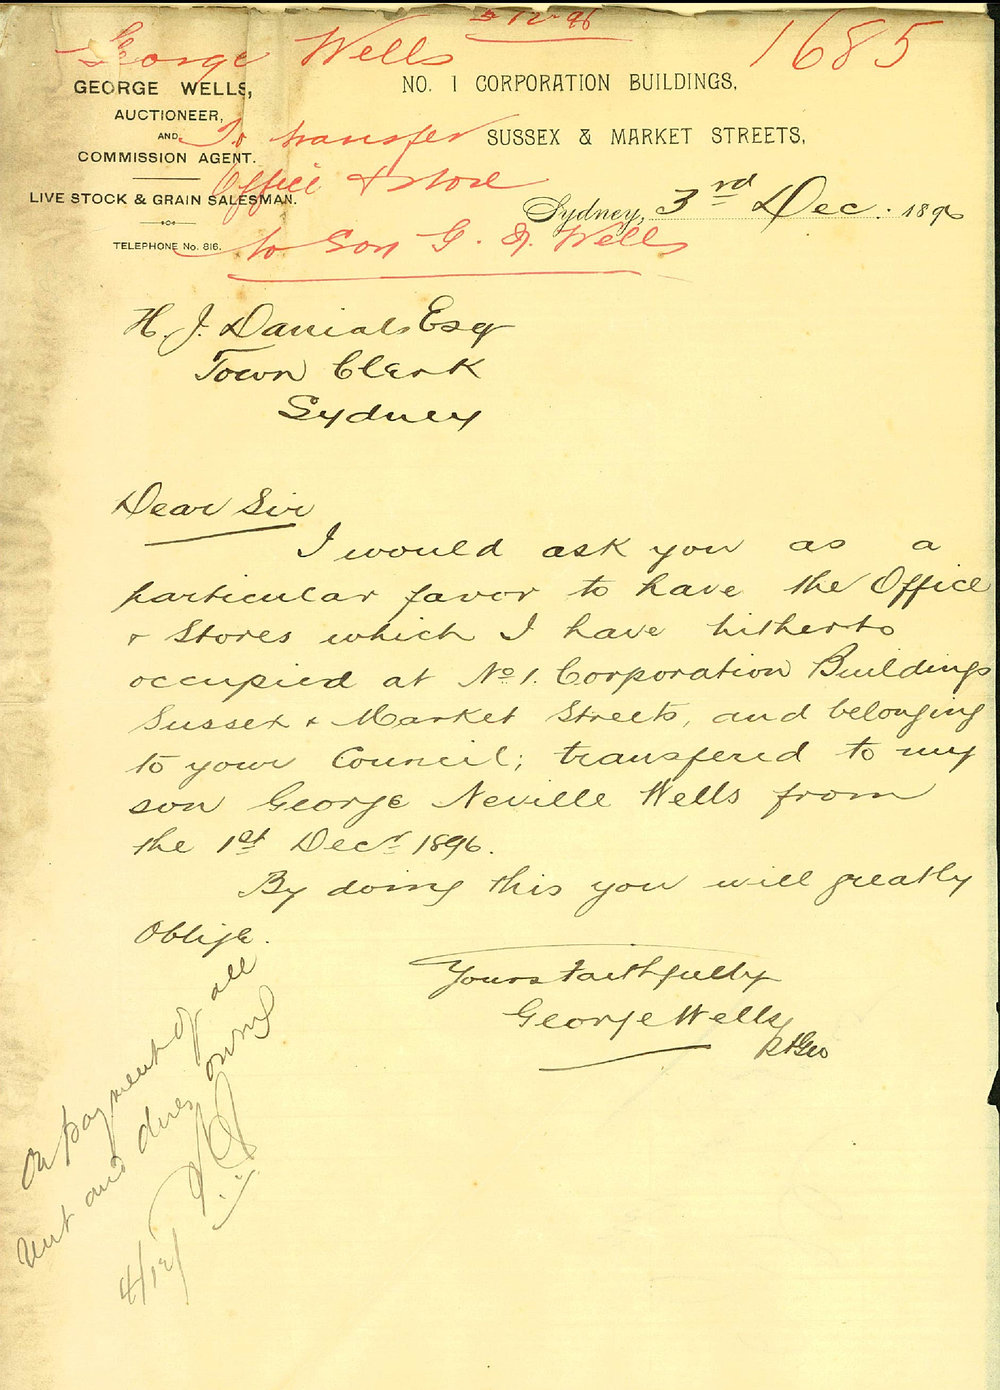 12-96
George Wells
1685
GEORGE WELLS,
AUCTIONEER,
AND
COMMISSION AGENT.
LIVE STOCK & GRAIN SALESMAN.
TELEPHONE No. 816.
NO. 1 CORPORATION BUILDINGS,
SUSSEX & MARKET STREETS,
Sydney, 3rd Dec. 1896
To transfer
Office & store
to Son G. N. Wells
H. J. Danials Esq
Town Clerk
Sydney
Dear Sir
I would ask you as a
particular favor to have the Office
& Stores which I have hitherto
occupied at No 1. Corporation Buildings
Sussex & Market Streets, and belonging
to your Council; transfered to my
son George Neville Wells from
the 1st Decr 1896.
By doing this you will greatly
Oblige.
Yours Faithfully
George Wells
On payment of all
rent and dues owing
4/12/